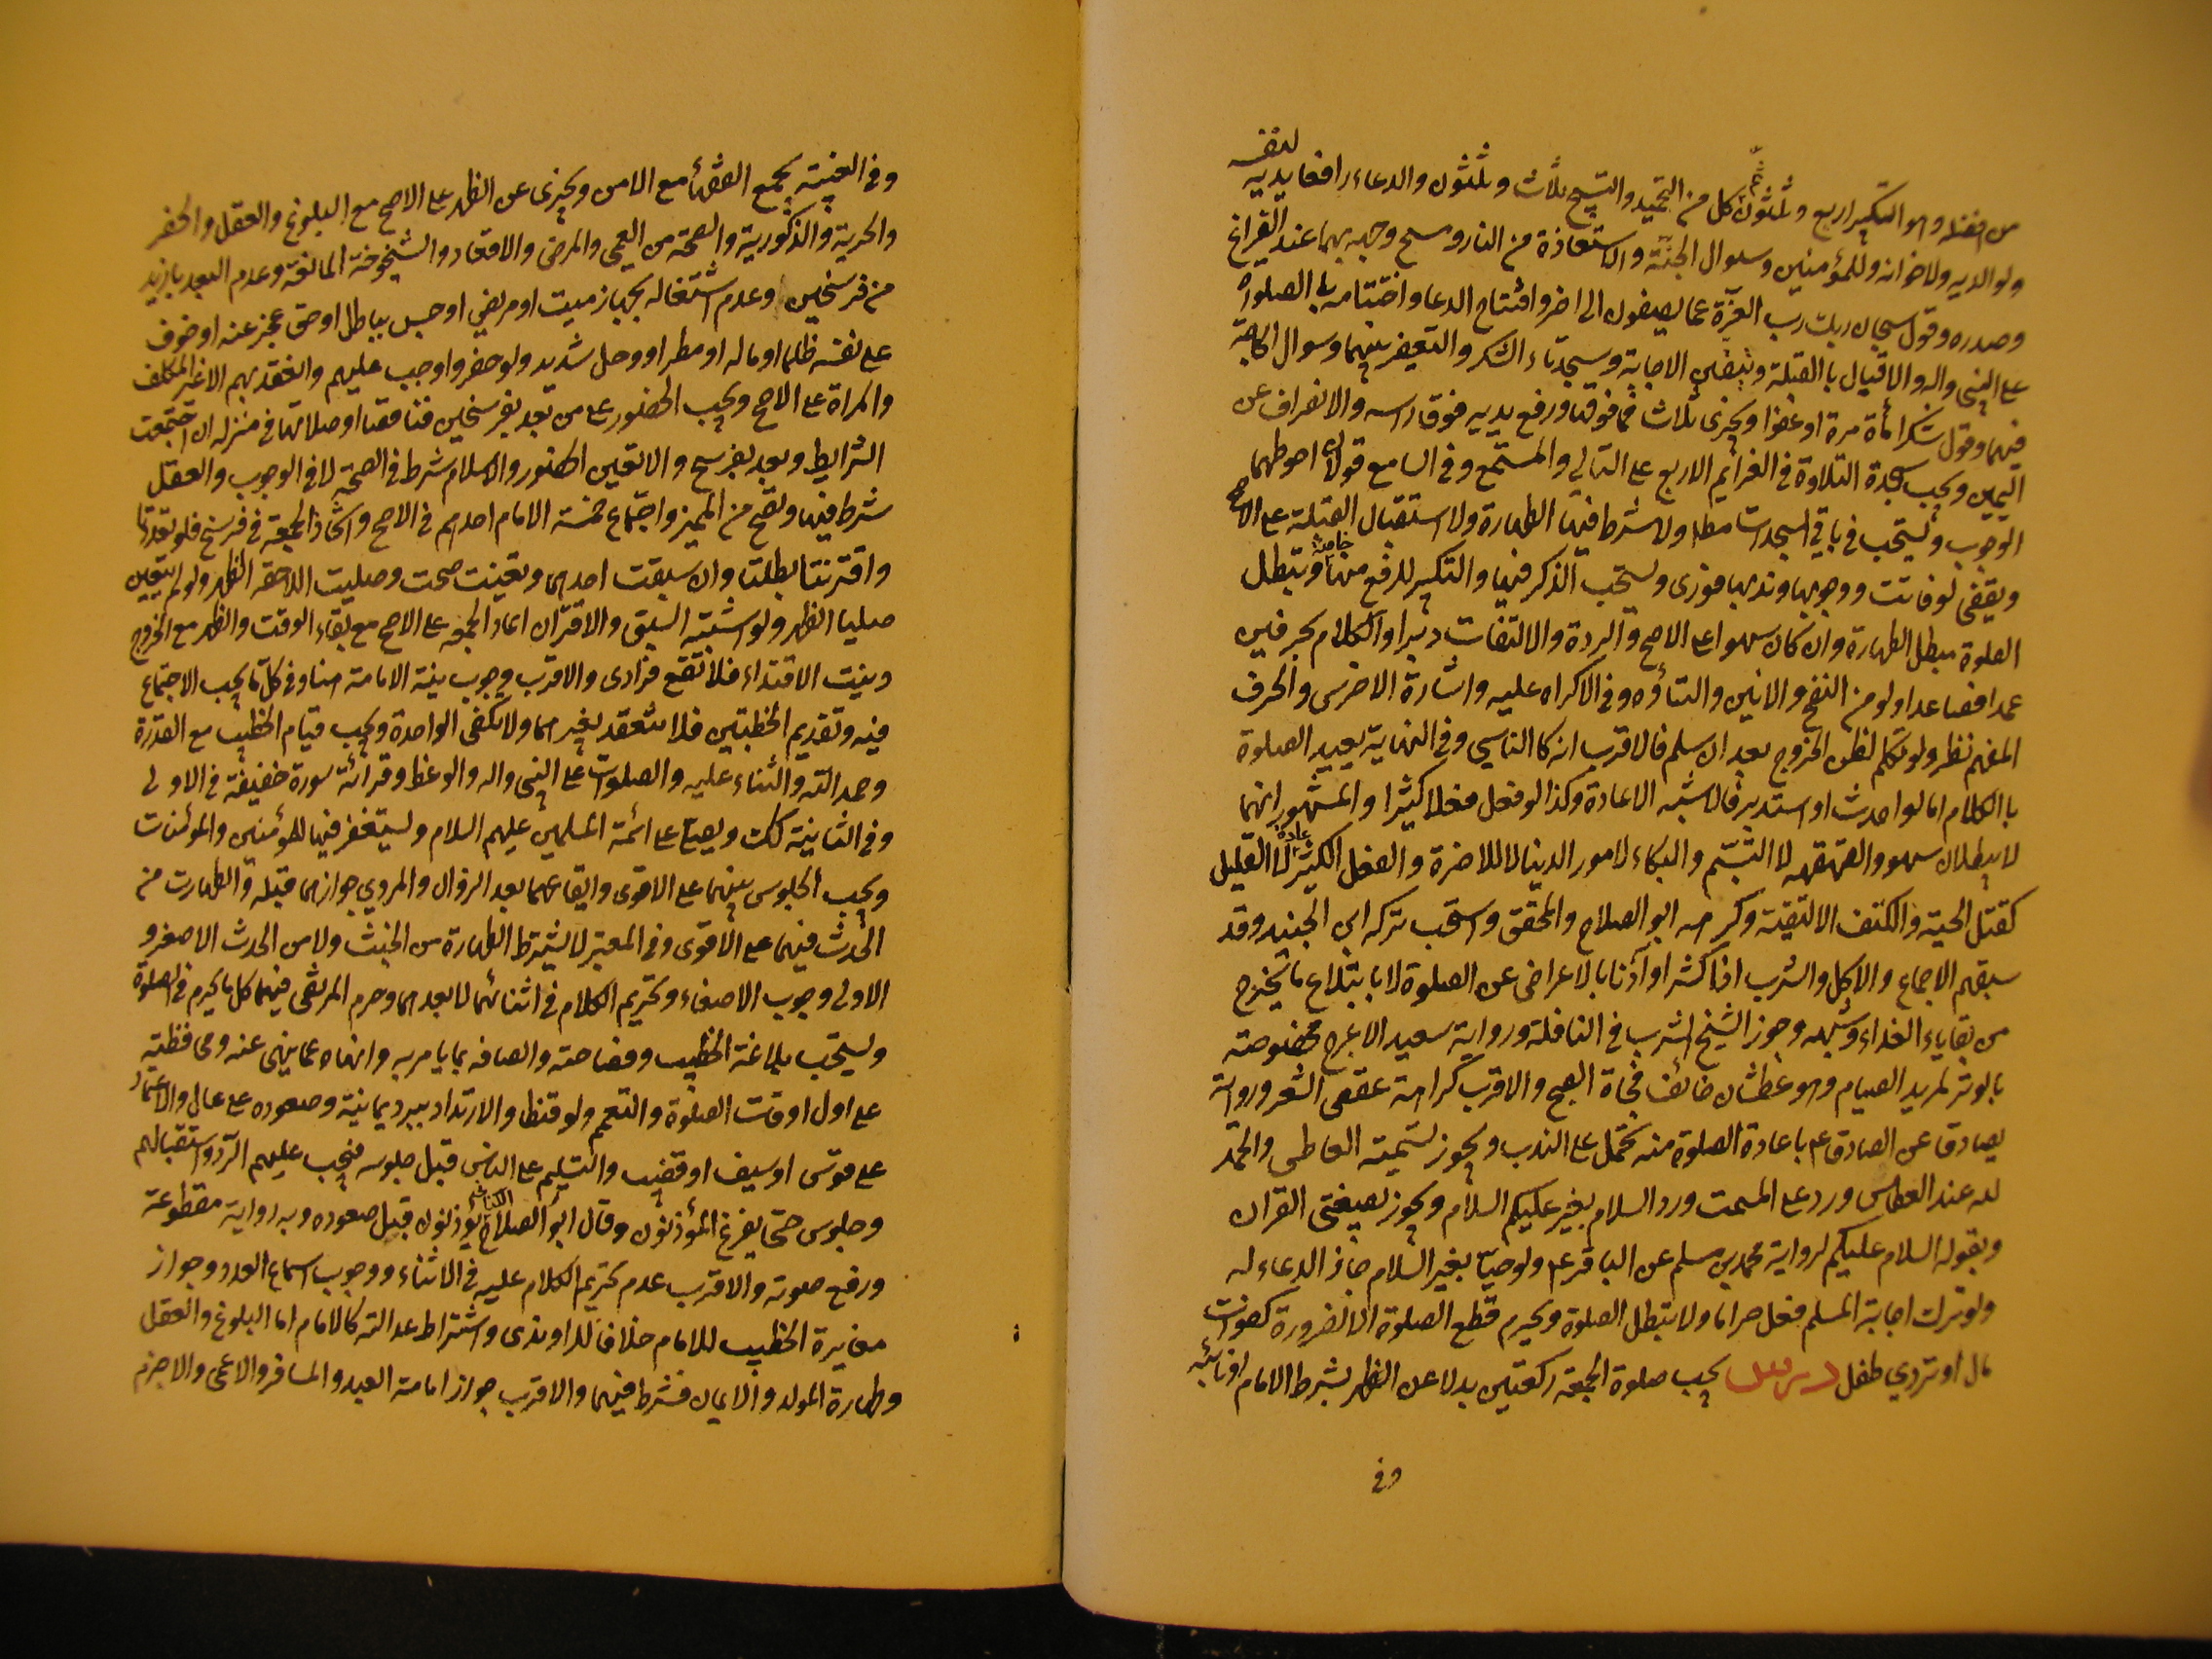 من افضله وهو التكبير اربع وثلثون ثم كل من التحميد والتسبيح ثلاث وثلثون والدعاء رافعا يديه لنفسه
ولوالديه ولاخوانه وللمؤمنين وسوال الجنة والاستعاذة من النار ومسح وجهه بهما عند الفراغ
وصدره وقول سبحان ربك رب العزة عما يصفون الى اخر وافتتاح الدعا واختتامه بالصلوة
على النبي واله والاقبال بالقبلة وتيقن الاجابة وسجدتاء الشكر والتعفير بينهما وسوال الحاجة
فيهما وقول شكرا مأة مرة او عفوا ويجزى ثلاث فما فوقها ورفع يديه فوق راسه والانصراف عن
اليمين ويجب سجدة التلاوة في العزائم الاربع على التالي والمستمع وفي السامع قولان احوطهما
الوجوب ويستحب في باقي السجدات مطلقا ولا شرط فيها الطهارة ولا استقبال القبلة على الاصح
ويقضى لو فاتت ووجوبها وندبها فورى ويستحب الذكر فيها والتكبير للرفع منها خاصة وتبطل
الصلوة مبطل الطهارة وان كان سهوا على الاصح والردة والالتفات دبرا والكلام بحرفين
عمدا فصاعدا ولو من النفخ والانين والتأوه وفي الاكراه عليه واشارة الاخرس والحرف
المفهم نظر ولو تكلم لظن الخروج بعد ان سلم فالاقرب انه كالناسي وفي النهاية يعيد الصلوة
بالكلام اما لو احدث او استدبر فالاشبه الاعادة وكذا لو فعل فعلا كثيرا والمشهور انهما
لا يبطلان سهوا والقهقهه لا التبسم والبكاء لامور الدنيا لا للاخرة والفعل الكثير عادة لا القليل
كقتل الحية والكتف الا لتقية وكرهه ابو الصلاح والمحقق واستحب تركه ابن الجنيد وقد
سبقهم الاجماع والاكل والشرب اذا كثر او آذنا بالاعراض عن الصلوة لا بابتلاع ما يخرج
من بقايا الغذاء وشبهه وجوز الشيخ الشرب في النافلة ورواية سعيد الاعرج مخصوصة
بالوتر لمريد الصيام وهو عطشان خائف فجاة الصبح والاقرب كراهة عقص الشعر ورواية
يصادف عن الصادق ع باعادة الصلوة منه تحمل على الندب ويجوز تسمية العاطس والحمد
لله عند العطاس ورد على المسمت ورد السلام بغير عليكم السلام ويجوز بصيغتي القران
وبقوله السلام عليكم لرواية محمد بن مسلم عن الباقر ع ولو حيا بغير السلام جاز الدعاء له
ولو ترك اجابة المسلم فعل حراما ولا تبطل الصلوة ويحرم قطع الصلوة الا لضرورة كفوات
مال او تردي طفل درس يجب صلوة الجمعة ركعتين بدلا عن الظهر بشرط الامام او نائبه
وفي
وفي الغيبة يجمع الفقهاء مع الامن ويجزى عن الظهر على الاصح مع البلوغ والعقل والحضر
والحرية والذكورية والصحة من العمى والمرض والاقعاد والشيخوخة المانعة وعدم البعد بازيد
من فرسخين وعدم اشتغاله بجهاز ميت او مريض او حبس بباطل او حق عجز عنه او خوف
على نفسه ظلما او ماله او مطر او وحل شديد ولو حضروا وجب عليهم وانعقد بهم الا غير المكلف
والمراة على الاصح ويجب الحضور على من بعد بفرسخين فناقصا او صلاتها في منزله ان اجتمعت
الشرايط وبعد بفرسخ والا تعين الحضور والاسلام شرط في الصحة لا في الوجوب والعقل
شرط فيها وتصح من المميز واجتماع خمسة الامام احدهم في الاصح واتحاد الجمعة في فرسخ فلو تعددتا
واقترنتا بطلتا وان سبقت احديهما وتعينت صحت وصليت اللاحقة الظهر ولو لم يتعين
صليا الظهر ولو اشتبه السبق والاقتران اعاد الجمعة على الاصح مع بقاء الوقت والظهر مع الخروج
ونيت الاقتداء فلا تقع فرادى والاقرب وجوب نية الامامة هنا وفي كل ما يجب الاجتماع
فيه وتقديم الخطبتين فلا تنعقد بغيرهما ولا تكفى الواحدة ويجب قيام الخطيب مع القدرة
وحمد الله والثناء عليه والصلوات على النبي واله والوعظ وقرائة سورة خفيفة في الاولى
وفي الثانية كك ويصلي على ائمة المسلمين عليهم السلام ويستغفر فيها للمؤمنين والمؤمنات
ويجب الجلوس بينهما على الاقوى وايقاعهما بعد الزوال والمروي جوازهما قبله والطهارت من
الحدث فيهما على الاقوى وفي المعتبر لا يشترط الطهارة من الخبث ولا من الحدث الاصغر و
الاولى وجوب الاصغاء وتحريم الكلام في اثنائهما لا بعدهما وحرم المرتضى فيهما كل ما يحرم في الصلوة
ويستحب بلاغة الخطيب وفصاحته واتصافه بما يامر به وانهاه عما ينهى عنه ومحافظته
على اول اوقات الصلوة والتعمم ولو قيظا والارتداد ببرد يمانية وصعوده على عال والاعتماد
على قوس او سيف او قضيب والتسليم على الناس قبل جلوسه فيجب عليهم الرد واستقبالهم
وجلوس حتى يفرغ المؤذنون وقال ابو الصلاح يؤذنون قبل صعوده وبه رواية مقطوعة
ورفع صوته والاقرب عدم تحريم الكلام عليه في الاثناء ووجوب اسماع العدد وجواز
مغايرة الخطيب للامام خلافا للراوندى واشتراط عدالته كالامام اما البلوغ والعقل
وطهارة المولد والايمان فشرط فيهما والاقرب جواز امامة العبد والمسافر والاعمى والاجزم